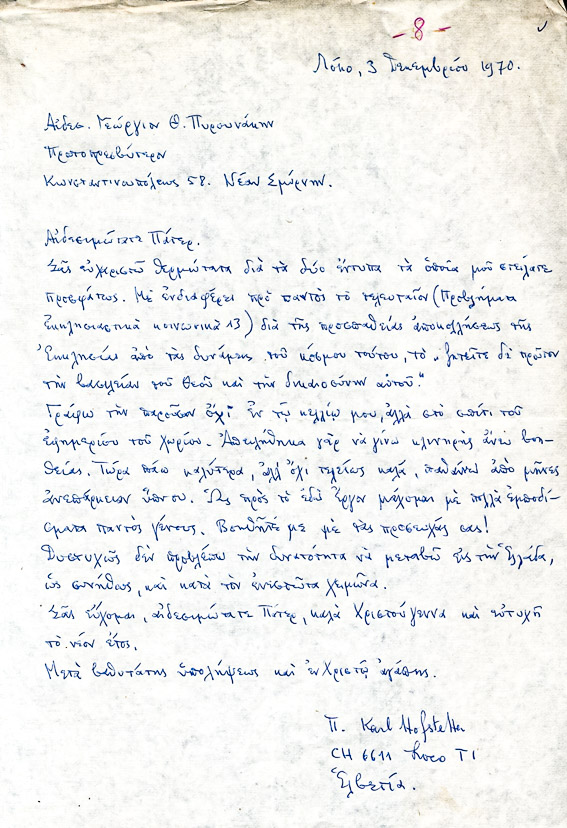 - 8 -
Λόκο, 3 Δεκεμβρίου 1970.
Αἰδεσ. Γεώργιον Θ. Πυρουνάκην
Πρωτοπρεσβύτερον
Κωνσταντινουπόλεως 58. Νέαν Σμύρνην.
Αἰδεσιμώτατε Πάτερ.
Σᾶς εὐχαριστῶ θερμώτατα διὰ τὰ δύο ἔντυπα τὰ ὁποῖα μοῦ στείλατε
προσφάτως. Μὲ ἐνδιαφέρει πρὸ παντὸς τὸ τελευταῖον (Προβλήματα
ἐκκλησιαστικὰ κοινωνικὰ 13) διὰ τῆς προσπαθείας ἀποκολλήσεως τῆς
Ἐκκλησίας ἀπὸ τὰς δυνάμεις τοῦ κόσμου τούτου, τὸ „ζητεῖτε δὲ πρῶτον
τὴν βασιλείαν τοῦ Θεοῦ καὶ τὴν δικαιοσύνην αὐτοῦ."
Γράφω τὴν παροῦσαν ὄχι ἐν τῷ κελλίῳ μου, ἀλλὰ στὸ σπίτι τοῦ
ἐφημερίου τοῦ χωρίου. Ἀπειλήθηκα γὰρ νὰ γίνω κλινήρης ἄνευ βοη-
θείας. Τώρα πάω καλύτερα, ἀλλ' ὄχι τελείως καλά, ἀπὸ μῆνες
ἀνεπάρκειαν ὕπνου. Ὡς πρὸς τὸ ἐδῶ ἔργον μάχομαι μὲ πολλὰ ἐμποδί-
σματα παντὸς γένους. Βοηθῆτέ με μὲ τὰς προσευχάς σας!
Δυστυχῶς δὲν προβλέπω τὴν δυνατότητα νὰ μεταβῶ εἰς τὴν Ἑλλάδα,
ὡς συνήθως, καὶ κατὰ τὸν ἐνεστῶτα χειμῶνα.
Σᾶς εὔχομαι, αἰδεσιμώτατε Πάτερ, καλὰ Χριστούγεννα καὶ εὐτυχῆ
τὸ νέον ἔτος.
Μετὰ βαθυτάτης ὑπολήψεως καὶ ἐν Χριστῷ ἀγάπης.
Π. Karl Hofstetter
CH 6611 Loco TI
Ἑλβετία.